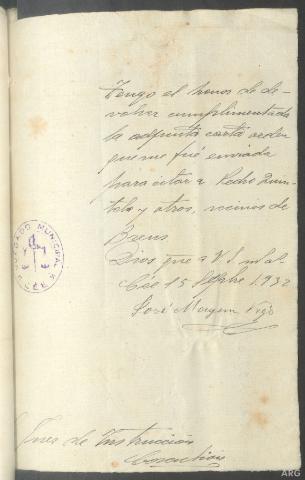 Tengo el honor de de-
volver cumplimentada
la adjunta carta orden
que me fué enviada
para citar a Pedro Quin-
tela y otros, vecinos de
Dios gue a V. S. m. a.
Cée 15 Septbre 1932
José
JUZGADO MUNICIPAL
Juez de Instrucción
Corcubion
ARG